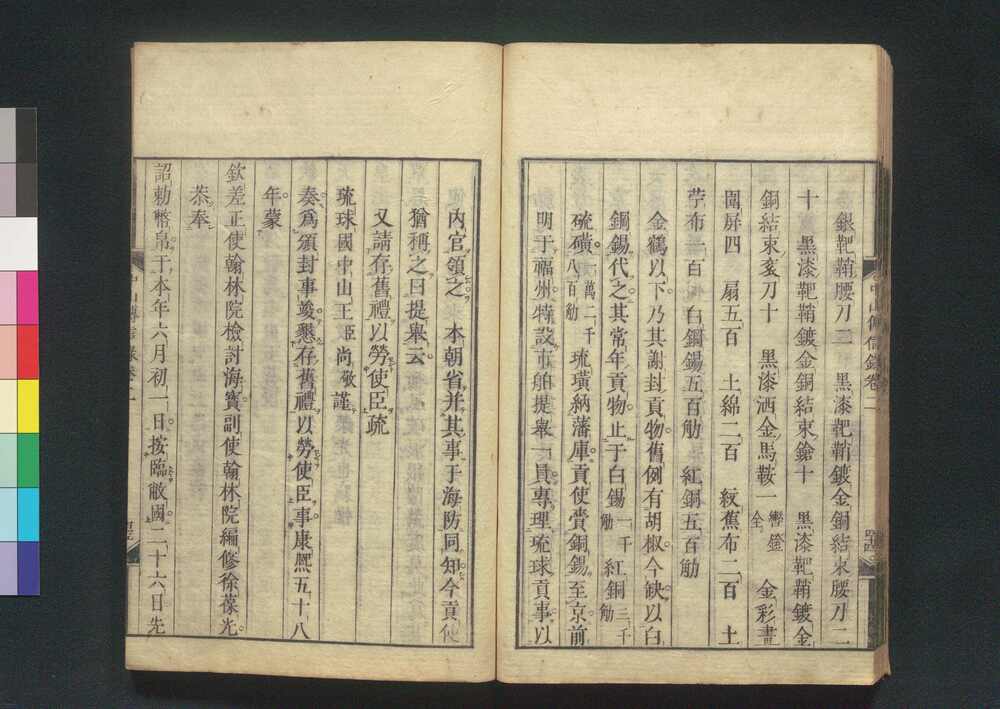 銀靶鞘腰刀二　黑漆靶鞘鍍金銅結束腰刀二
十　黑漆靶鞘鍍金銅結束鎗十　黑漆靶鞘鍍金
銅結束衮刀十　黑漆洒金馬鞍一轡鐙全　金彩畫
圍屏四　扇五百　土綿二百　紋蕉布二百　土
苧布一百　白鋼錫五百觔　紅銅五百觔
金鶴以下乃其謝封貢物舊例有胡椒今缺以白
鋼錫代之其常年貢物止于白錫一千觔　紅銅三千觔
硫磺一萬二千八百觔　琉璜納藩庫貢使賫銅錫至京前
明于福州特設市舶提舉一員專理琉球貢事以
中山傳信錄卷二
内官領之　本朝省并其事于海防同知今貢使
猶稱之曰提舉云
又請存舊禮以勞使臣疏
琉球國中山王臣尚敬謹
奏爲頒封事竣懇存舊禮以勞使臣事康熙五十八
年蒙
欽差正使翰林院檢討海寳副使翰林院編修徐葆光
恭奉
詔勅幣帛于本年六月初一日按臨敝國二十六日先